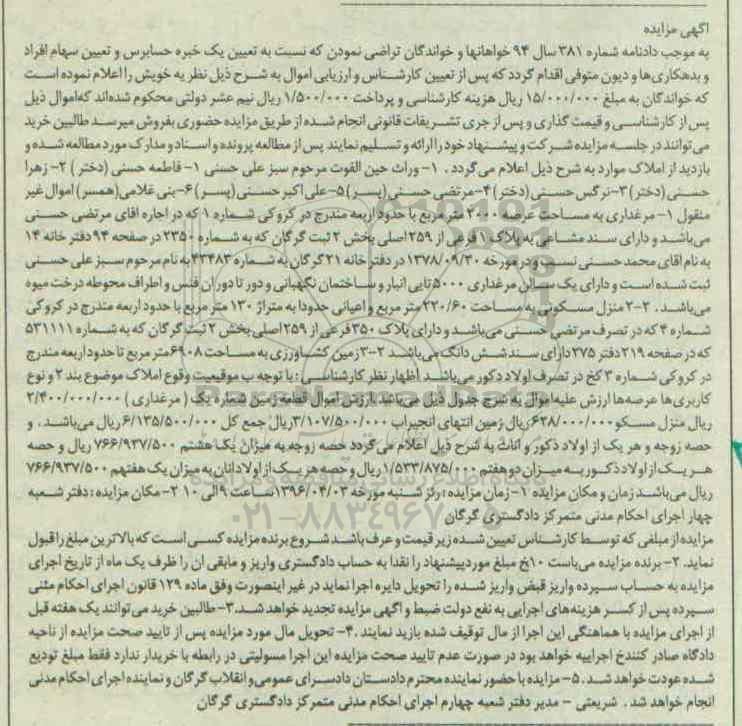 آگهی مزایده
به موجب دادنامه شماره ۳۸۱ سال ۹۴ خواهانها و خواندگان تراضی نمودن که نسبت به تعیین یک خبره حسابرس و تعیین سهام افراد
و بدهکاری‌ها و دیون متوفی اقدام گردد که پس از تعیین کارشناس و ارزیابی اموال به شرح ذیل نظریه خویش را اعلام نموده است
که خواندگان به مبلغ ۱۵/۰۰۰/۰۰۰ ریال هزینه کارشناسی و پرداخت ۱/۵۰۰/۰۰۰ ریال نیم عشر دولتی محکوم شده‌اند که اموال ذیل
پس از کارشناسی و قیمت گذاری و پس از جری تشریفات قانونی انجام شده از طریق مزایده حضوری بفروش میرسد طالبین خرید
می‌توانند در جلسه مزایده شرکت و پیشنهاد خود را ارائه و تسلیم نمایند پس از مطالعه پرونده و اسناد و مدارک مورد مطالعه شده و
بازدید از املاک موارد به شرح ذیل اعلام می‌گردد . ۱- وراث حین الفوت مرحوم سبز علی حسنی ۱- فاطمه حسنی (دختر) ۲- زهرا
حسنی (دختر) ۳- نرگس حسنی (دختر) ۴- مرتضی حسنی (پسر) ۵- علی اکبر حسنی (پسر) ۶- بنی غلامی (همسر) اموال غیر
منقول ۱- مرغداری به مساحت عرصه ۲۰۰۰ متر مربع با حدود اربعه مندرج در کروکی شماره ۱ که در اجاره اقای مرتضی حسنی
می‌باشد و دارای سند مشاعی به پلاک ۱ فرعی از ۲۵۹ اصلی بخش ۲ ثبت گرگان که به شماره ۲۳۵۰ در صفحه ۹۴ دفتر خانه ۱۴
به نام اقای محمد حسنی نسب و در مورخه ۱۳۷۸/۰۹/۳۰ در دفتر خانه ۲۱ گرگان به شماره ۴۳۴۸۳ به نام مرحوم سبز علی حسنی
ثبت شده است و دارای یک سالن مرغداری ۵۰۰۰ تایی انبار و ساختمان نگهبانی و دور تا دوران فنس و اطراف محوطه درخت میوه
می‌باشد . ۲-۲ منزل مسکونی به مساحت ۲۲۰/۶۰ متر مربع و اعیانی حدودا به متراژ ۱۳۰ متر مربع با حدود اربعه مندرج در کروکی
شماره ۴ که در تصرف مرتضی حسنی می‌باشد و دارای پلاک ۳۵۰ فرعی از ۲۵۹ اصلی بخش ۲ ثبت گرگان که به شماره ۵۳۱۱۱۱
که در صفحه ۲۱۹ دفتر ۲۷۵ دارای سند شش دانگ می‌باشد ۲-۳ زمین کشاورزی به مساحت ۶۹۰۸ متر مربع تا حدود اربعه مندرج
در کروکی شماره ۳ کخ در تصرف اولاد ذکور می‌باشد اظهار نظر کارشناسی : با توجه ب موقیعیت وقوع املاک موضوع بند ۲ و نوع
کاربری‌ها عرصه‌ها ارزش علیه اموال به شرح جدول ذیل می‌باشد با ارزش اموال قطعه زمین شماره یک ( مرغداری ) ۲/۴۰۰/۰۰۰/۰۰۰
ریال منزل مسکو ۶۲۸/۰۰۰/۰۰۰ ریال زمین انتهای انجیراب ۳/۱۰۷/۵۰۰/۰۰۰ ریال جمع کل ۶/۱۳۵/۵۰۰/۰۰۰ ریال می‌باشد . و
حصه زوجه و هر یک از اولاد ذکور و اناث به شرح ذیل اعلام می‌گردد حصه زوجه به میزان یک هشتم ۷۶۶/۹۳۷/۵۰۰ ریال و حصه
هر یک از اولاد ذکور به میزان دو هفتم ۱/۵۳۳/۸۷۵/۰۰۰ ریال و حصه هر یک از اولاد انان به میزان یک هفتهم ۷۶۶/۹۳۷/۵۰۰
ریال می‌باشد زمان و مکان مزایده ۱- زمان مزایده : رئز شنبه مورخه ۱۳۹۶/۰۴/۰۳ ساعت ۹ الی ۱۰ ۲- مکان مزایده : دفتر شعبه
چهار اجرای احکام مدنی متمرکز دادگستری گرگان
مزایده از مبلغی که توسط کارشناس تعیین شده زیر قیمت و عرف باشد شروع برنده مزایده کسی است که بالاترین مبلغ را قبول
نماید. ۲- برنده مزایده می‌باست ۱۰خ مبلغ مورد پیشنهاد را نقدا به حساب دادگستری واریز و مابقی ان را ظرف یک ماه از تاریخ اجرای
مزایده به حساب سپرده واریز قبض واریز شده را تحویل دایره اجرا نماید در غیر اینصورت وفق ماده ۱۲۹ قانون اجرای احکام مئنی
سپرده پس از کسر هزینه‌های اجرایی به نفع دولت ضبط و اگهی مزایده تجدید خواهد شد. ۳- طالبین خرید می‌توانند یک هفته قبل
از اجرای مزایده با هماهنگی این اجرا از مال توقیف شده بازید نمایند .۴- تحویل مال مورد مزایده پس از تایید صحت مزایده از ناحیه
دادگاه صادر کنندخ اجراییه خواهد بود در صورت عدم تایید صحت مزایده این اجرا مسولیتی در رابطه با خریدار ندارد فقط مبلغ تودیع
شده عودت خواهد شد . ۵- مزایده با حضور نماینده محترم دادستان دادسرای عمومی و انقلاب گرگان و نماینده اجرای احکام مدنی
انجام خواهد شد . شریعتی - مدیر دفتر شعبه چهارم اجرای احکام مدنی متمرکز دادگستری گرگان
۰۲۱-۸۸۳۴۹۶۷۰